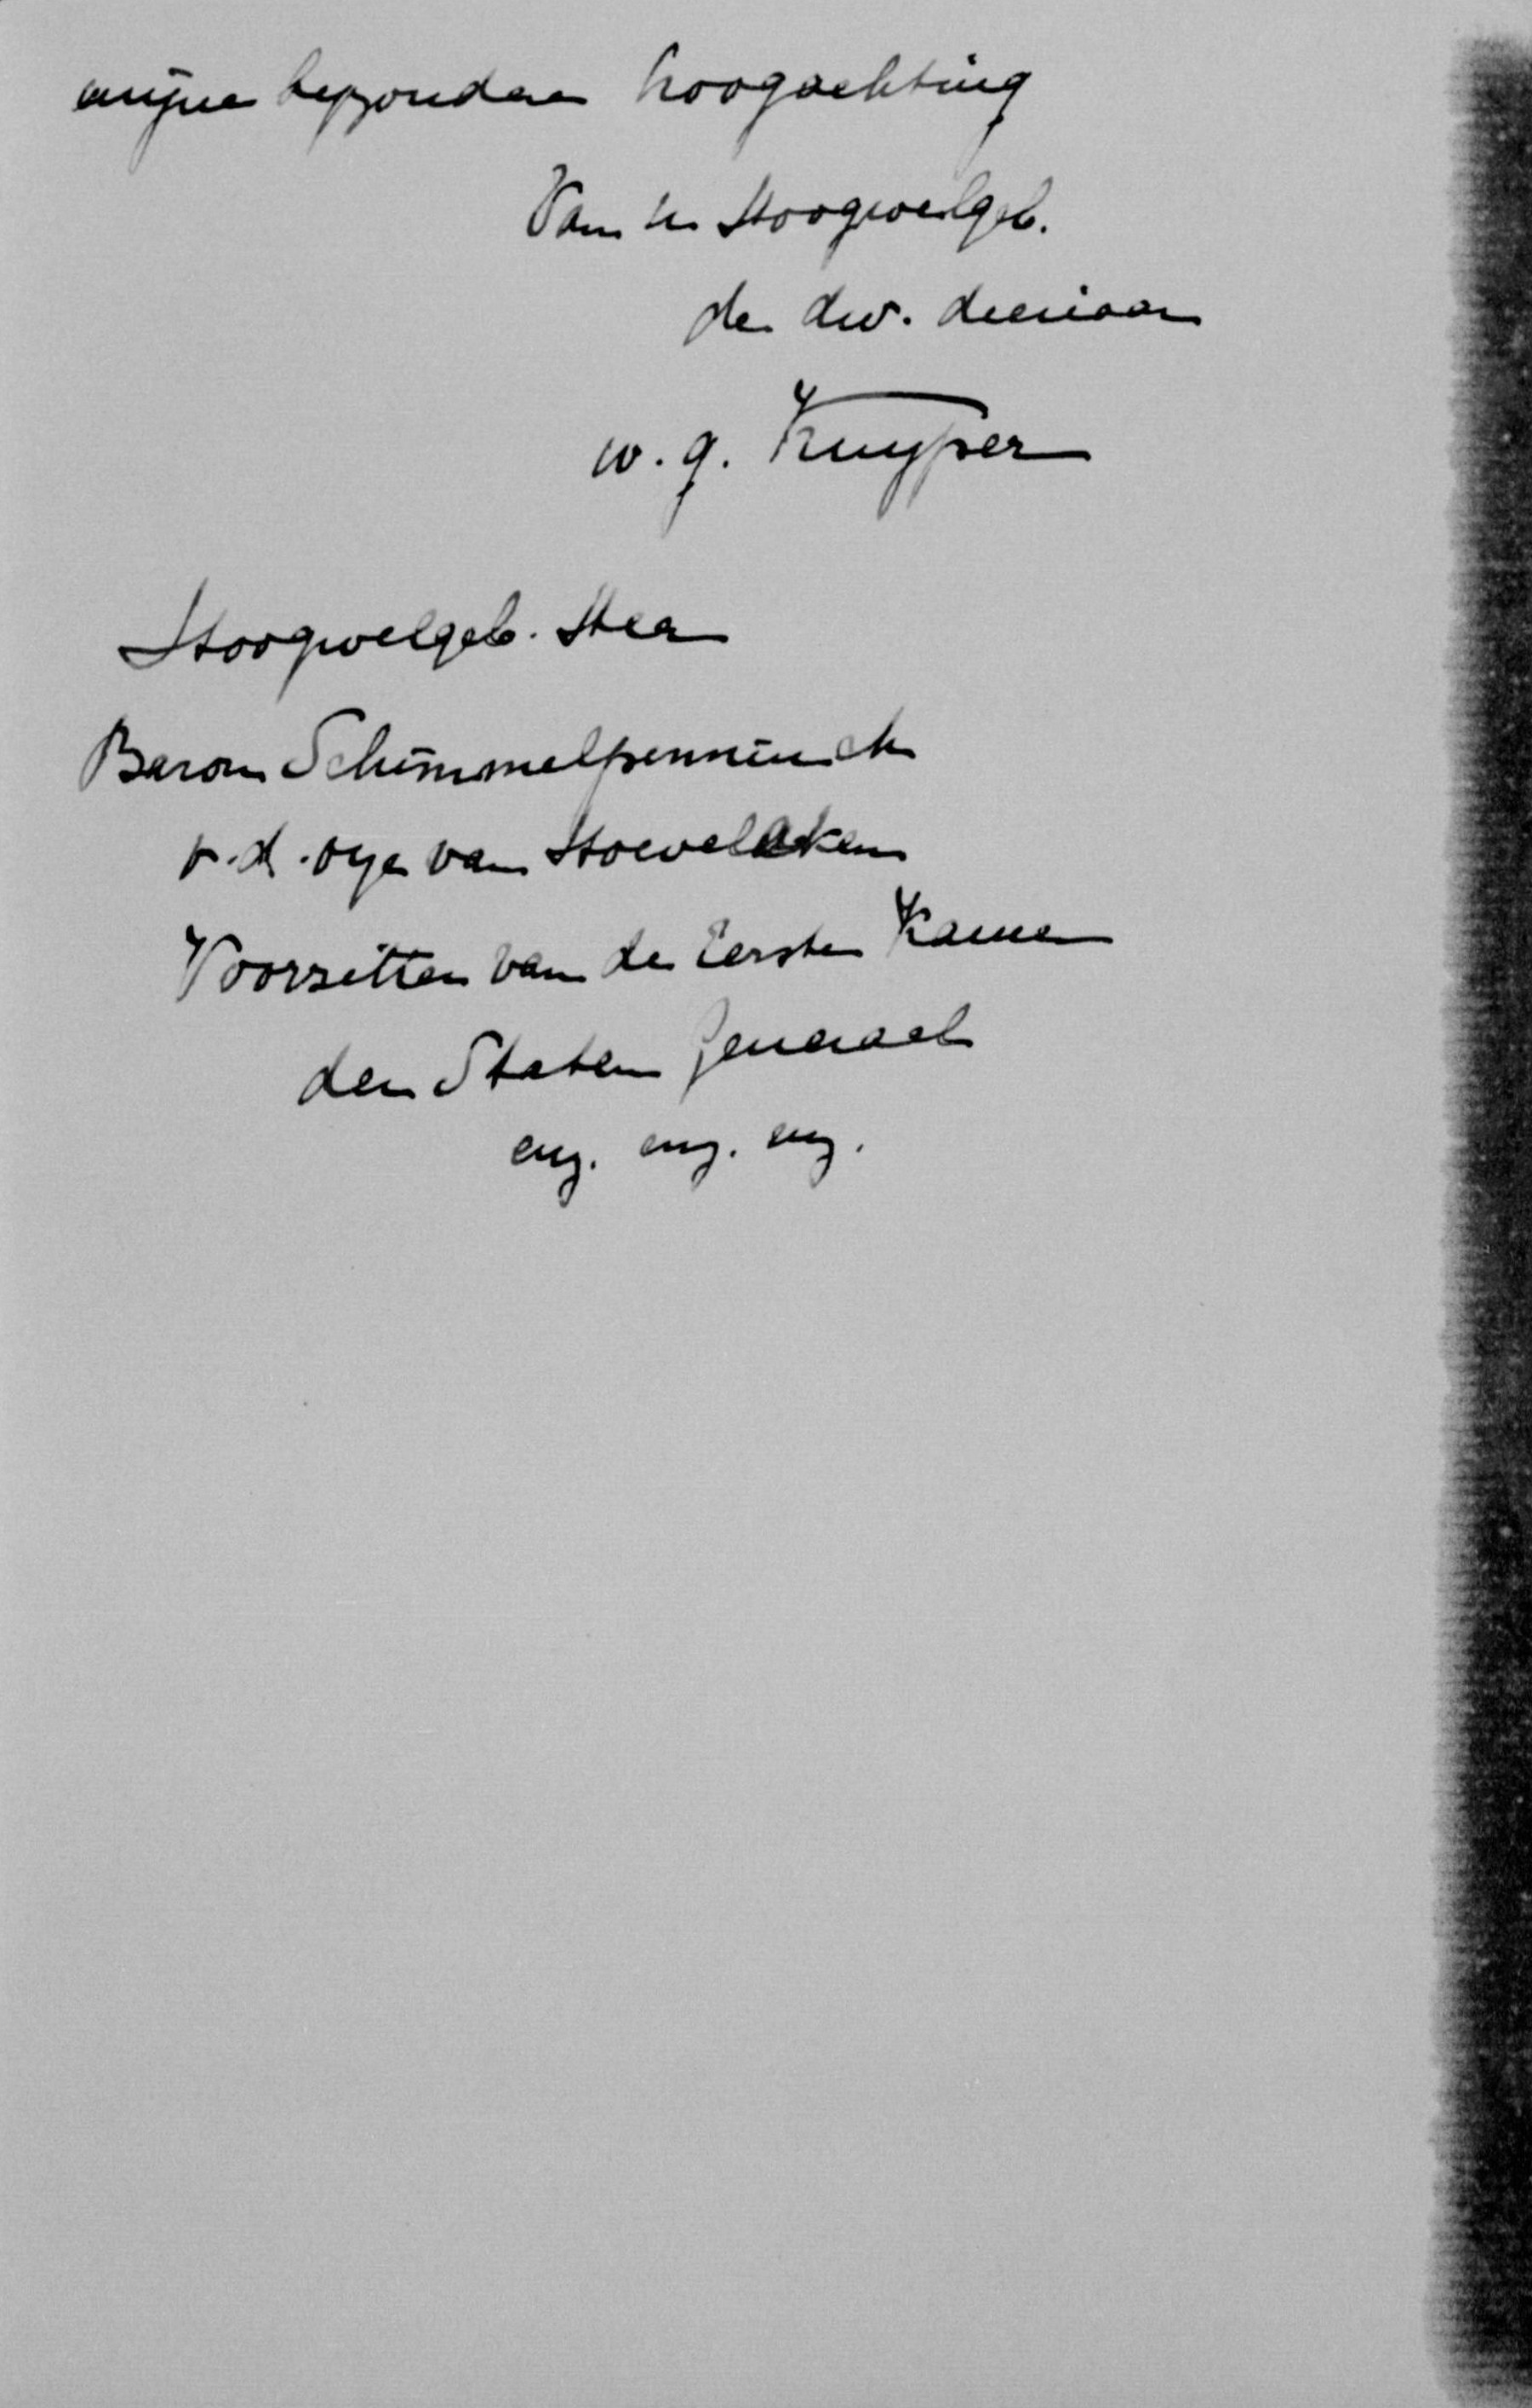 mijne bijzondere hoogachting
Van Uw Hoogwelgeb.
de dw. dienaar
w.g. Kuyper
Hoogwelgeb. Heer
Baron Schimmelpenninck
v.d. Oye van Hoevelaken
Voorzitter van de Eerste Kamer
der Staten Generaal
enz. enz. enz.